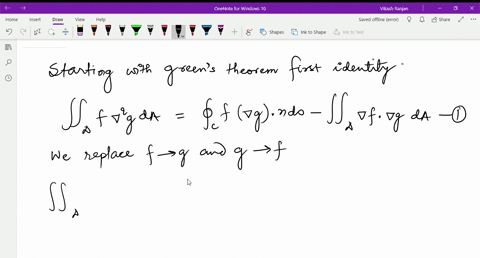 OneNote for Windows 10
Vikash Ranjan
File Home Insert Draw View Help
Saved offline (error) Share
Shapes Ink to Shape
Starting with green's theorem first identity.
∬_D f ∇²g dA = ∮_C f (∇g)·n ds − ∬_D ∇f·∇g dA —①
We replace f→g and g→f
∬_D